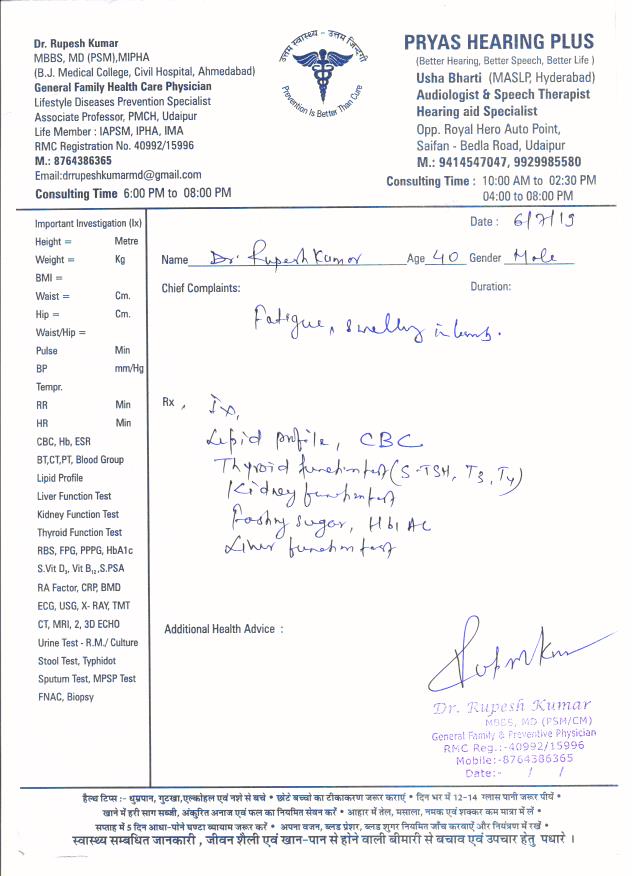 Dr. Rupesh Kumar
MBBS, MD (PSM),MIPHA
(B.J. Medical College, Civil Hospital, Ahmedabad)
General Family Health Care Physician
Lifestyle Diseases Prevention Specialist
Associate Professor, PMCH, Udaipur
Life Member : IAPSM, IPHA, IMA
RMC Registration No. 40992/15996
M.: 8764386365
Email:drrupeshkumarmd@gmail.com
Consulting Time 6:00 PM to 08:00 PM
उत्तम स्वास्थ्य - उत्तम जिन्दगी
Prevention Is Better Than Cure
PRYAS HEARING PLUS
(Better Hearing, Better Speech, Better Life )
Usha Bharti (MASLP, Hyderabad)
Audiologist & Speech Therapist
Hearing aid Specialist
Opp. Royal Hero Auto Point,
Saifan - Bedla Road, Udaipur
M.: 9414547047, 9929985580
Consulting Time : 10:00 AM to 02:30 PM
04:00 to 08:00 PM
Important Investigation (Ix)
Height = Metre
Weight = Kg
BMI =
Waist = Cm.
Hip = Cm.
Waist/Hip =
Pulse Min
BP mm/Hg
Tempr.
RR Min
HR Min
CBC, Hb, ESR
BT,CT,PT, Blood Group
Lipid Profile
Liver Function Test
Kidney Function Test
Thyroid Function Test
RBS, FPG, PPPG, HbA1c
S.Vit D3, Vit B12,S.PSA
RA Factor, CRP, BMD
ECG, USG, X- RAY, TMT
CT, MRI, 2, 3D ECHO
Urine Test - R.M./ Culture
Stool Test, Typhidot
Sputum Test, MPSP Test
FNAC, Biopsy
Date : 6/7/19
Name Dr. Rupesh Kumar Age 40 Gender Male
Chief Complaints: Duration:
Fatigue, swelling in
Rx , Ix,
Lipid profile, CBC
Thyroid function test (S-TSH, T3, T4)
Kidney function test
Fasting sugar, Hb1AC
Liver function test
Additional Health Advice :
Dr. Rupesh Kumar
MBBS, MD (PSM/CM)
General Family & Preventive Physician
RMC Reg.:-40992/15996
Mobile:-8764386365
Date:- / /
हैल्थ टिप्स :- धुम्रपान, गुटखा,एल्कोहल एवं नशे से बचे * छोटे बच्चों का टीकाकरण जरूर कराऐं * दिन भर में 12-14 ग्लास पानी जरूर पीयें *
खाने में हरी साग सब्जी, अंकुरित अनाज एवं फल का नियमित सेवन करें * आहार में तेल, मसाला, नमक एवं शक्कर कम मात्रा में लें *
सप्ताह में 5 दिन आधा-पोने घण्टा व्यायाम जरूर करें * अपना वजन, ब्लड प्रेशर, ब्लड शुगर नियमित जाँच करवाऐं और नियंत्रण में रखें *
स्वास्थ्य सम्बंधित जानकारी , जीवन शैली एवं खान-पान से होने वाली बीमारी से बचाव एवं उपचार हेतु पधारे ।